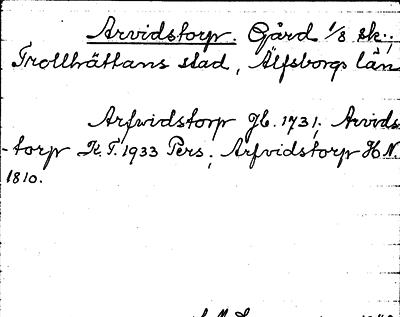 Arvidstorp. Gård 1/8 sk.;
Trollhättans stad, Älfsborgs län
Arfwidstorp Jb. 1731; Arvids
-torp K.T. 1933 Pers; Arfvidstorp H.N.
1810.